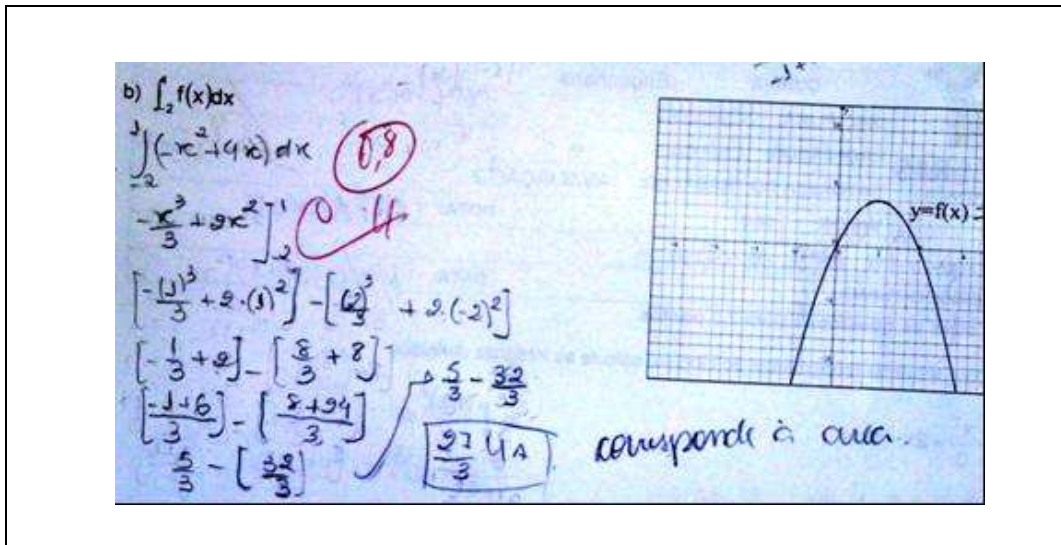 b) ∫₋₂¹ f(x)dx
∫₋₂¹ (-x² + 4x) dx
0,8
-x³/3 + 2x² ]₋₂¹
[-(1)³/3 + 2·(1)²] - [(2)³/3 + 2·(-2)²]
y=f(x)
[-1/3 + 2] - [8/3 + 8]
[-1+6/3] - [8+24/3]
5/3 - 32/3
5/3 - [32/3]
27/3 UA
corresponde à area.